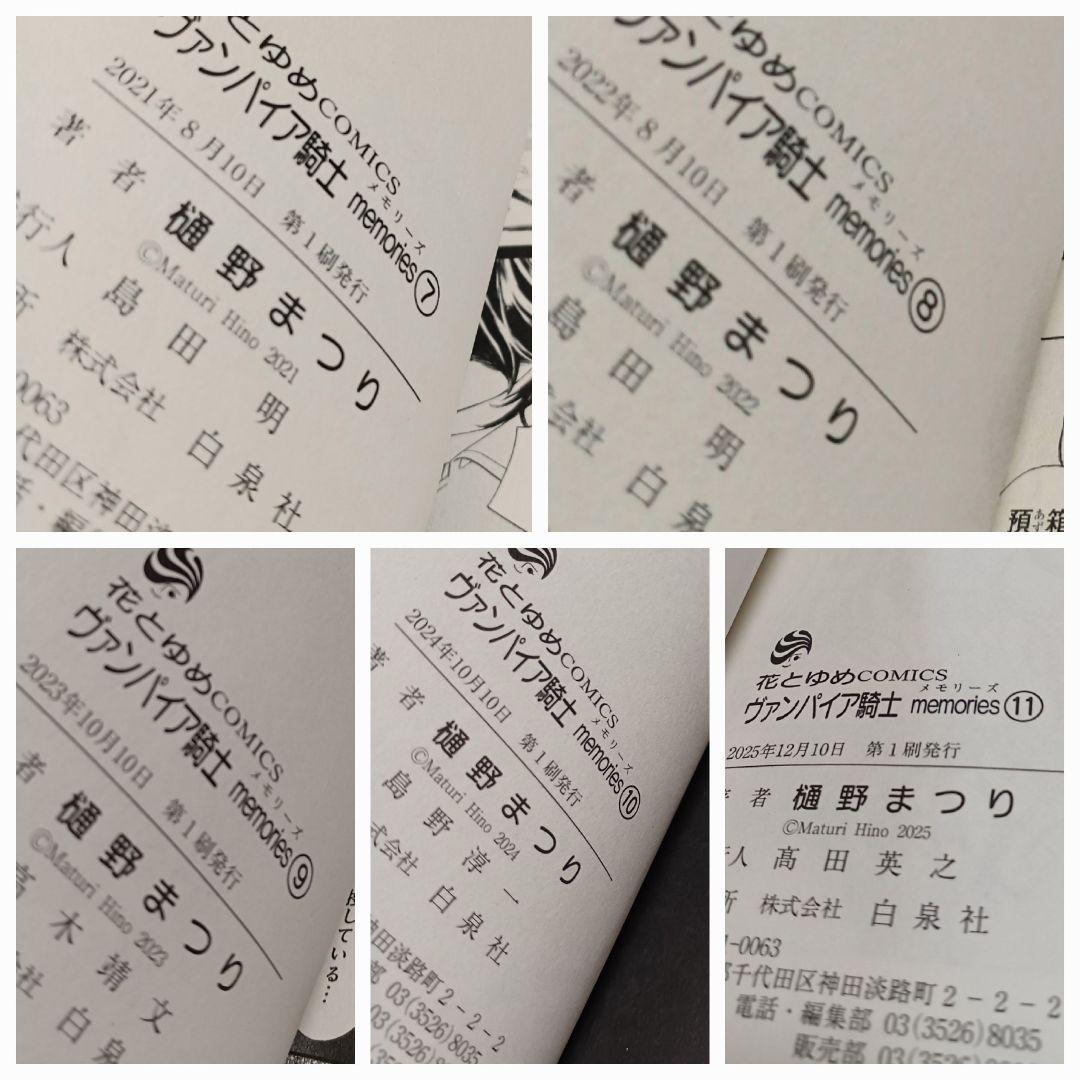 とゆめCOMICS
ヴァンパイア騎士 memories⑦
メモリーズ
2021年8月10日 第1刷発行
著者 樋野まつり
©Maturi Hino 2021
行人 島田明
所 株式会社 白泉社
0063
代田区神田淡
話・編
とゆめCOMICS
ヴァンパイア騎士 memories⑧
メモリーズ
2022年8月10日 第1刷発行
者 樋野まつり
©Maturi Hino 2022
島田明
会社 白泉
預箱
あず
花とゆめCOMICS
ヴァンパイア騎士 memories⑨
メモリーズ
2023年10月10日 第1刷発行
者 樋野まつり
©Maturi Hino 2023
木靖文
会社 白泉
している…
花とゆめCOMICS
ヴァンパイア騎士 memories⑩
メモリーズ
2024年10月10日 第1刷発行
著者 樋野まつり
©Maturi Hino 2024
島野淳一
式会社 白泉社
神田淡路町2-2-2
部 03(3526)8035
03(3526)
花とゆめCOMICS
メモリーズ
ヴァンパイア騎士 memories⑪
2025年12月10日 第1刷発行
者 樋野まつり
©Maturi Hino 2025
人 髙田英之
所 株式会社 白泉社
1-0063
千代田区神田淡路町2-2-2
電話・編集部 03(3526)8035
販売部 03(3526)